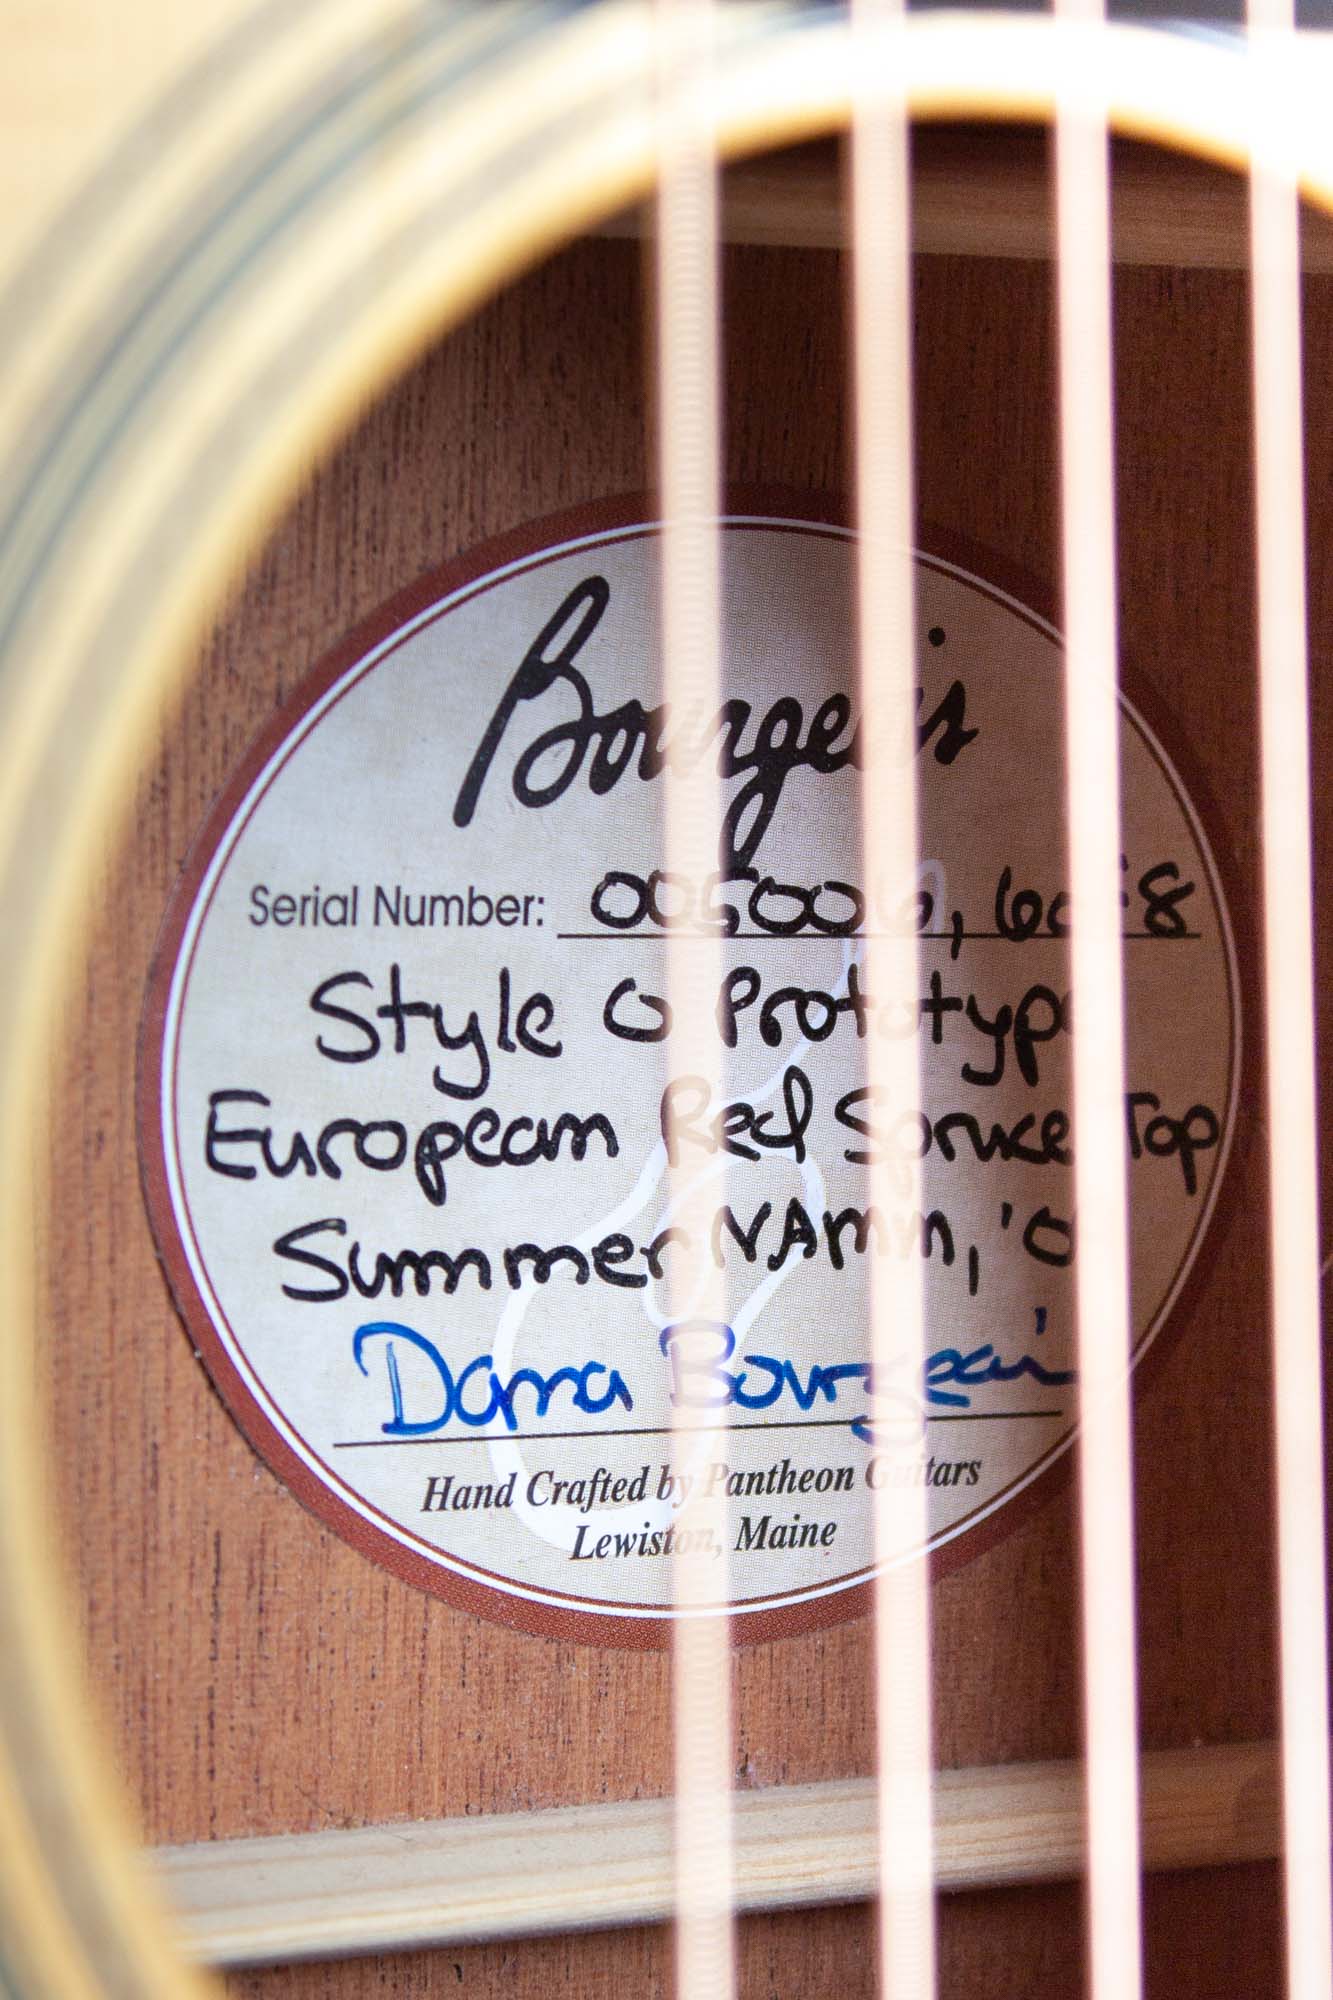 Bourgeois
Serial Number:
Style O Prototype
European Red Spruce Top
Summer NAMM,
Dana Bourgeois
Hand Crafted by Pantheon Guitars
Lewiston, Maine